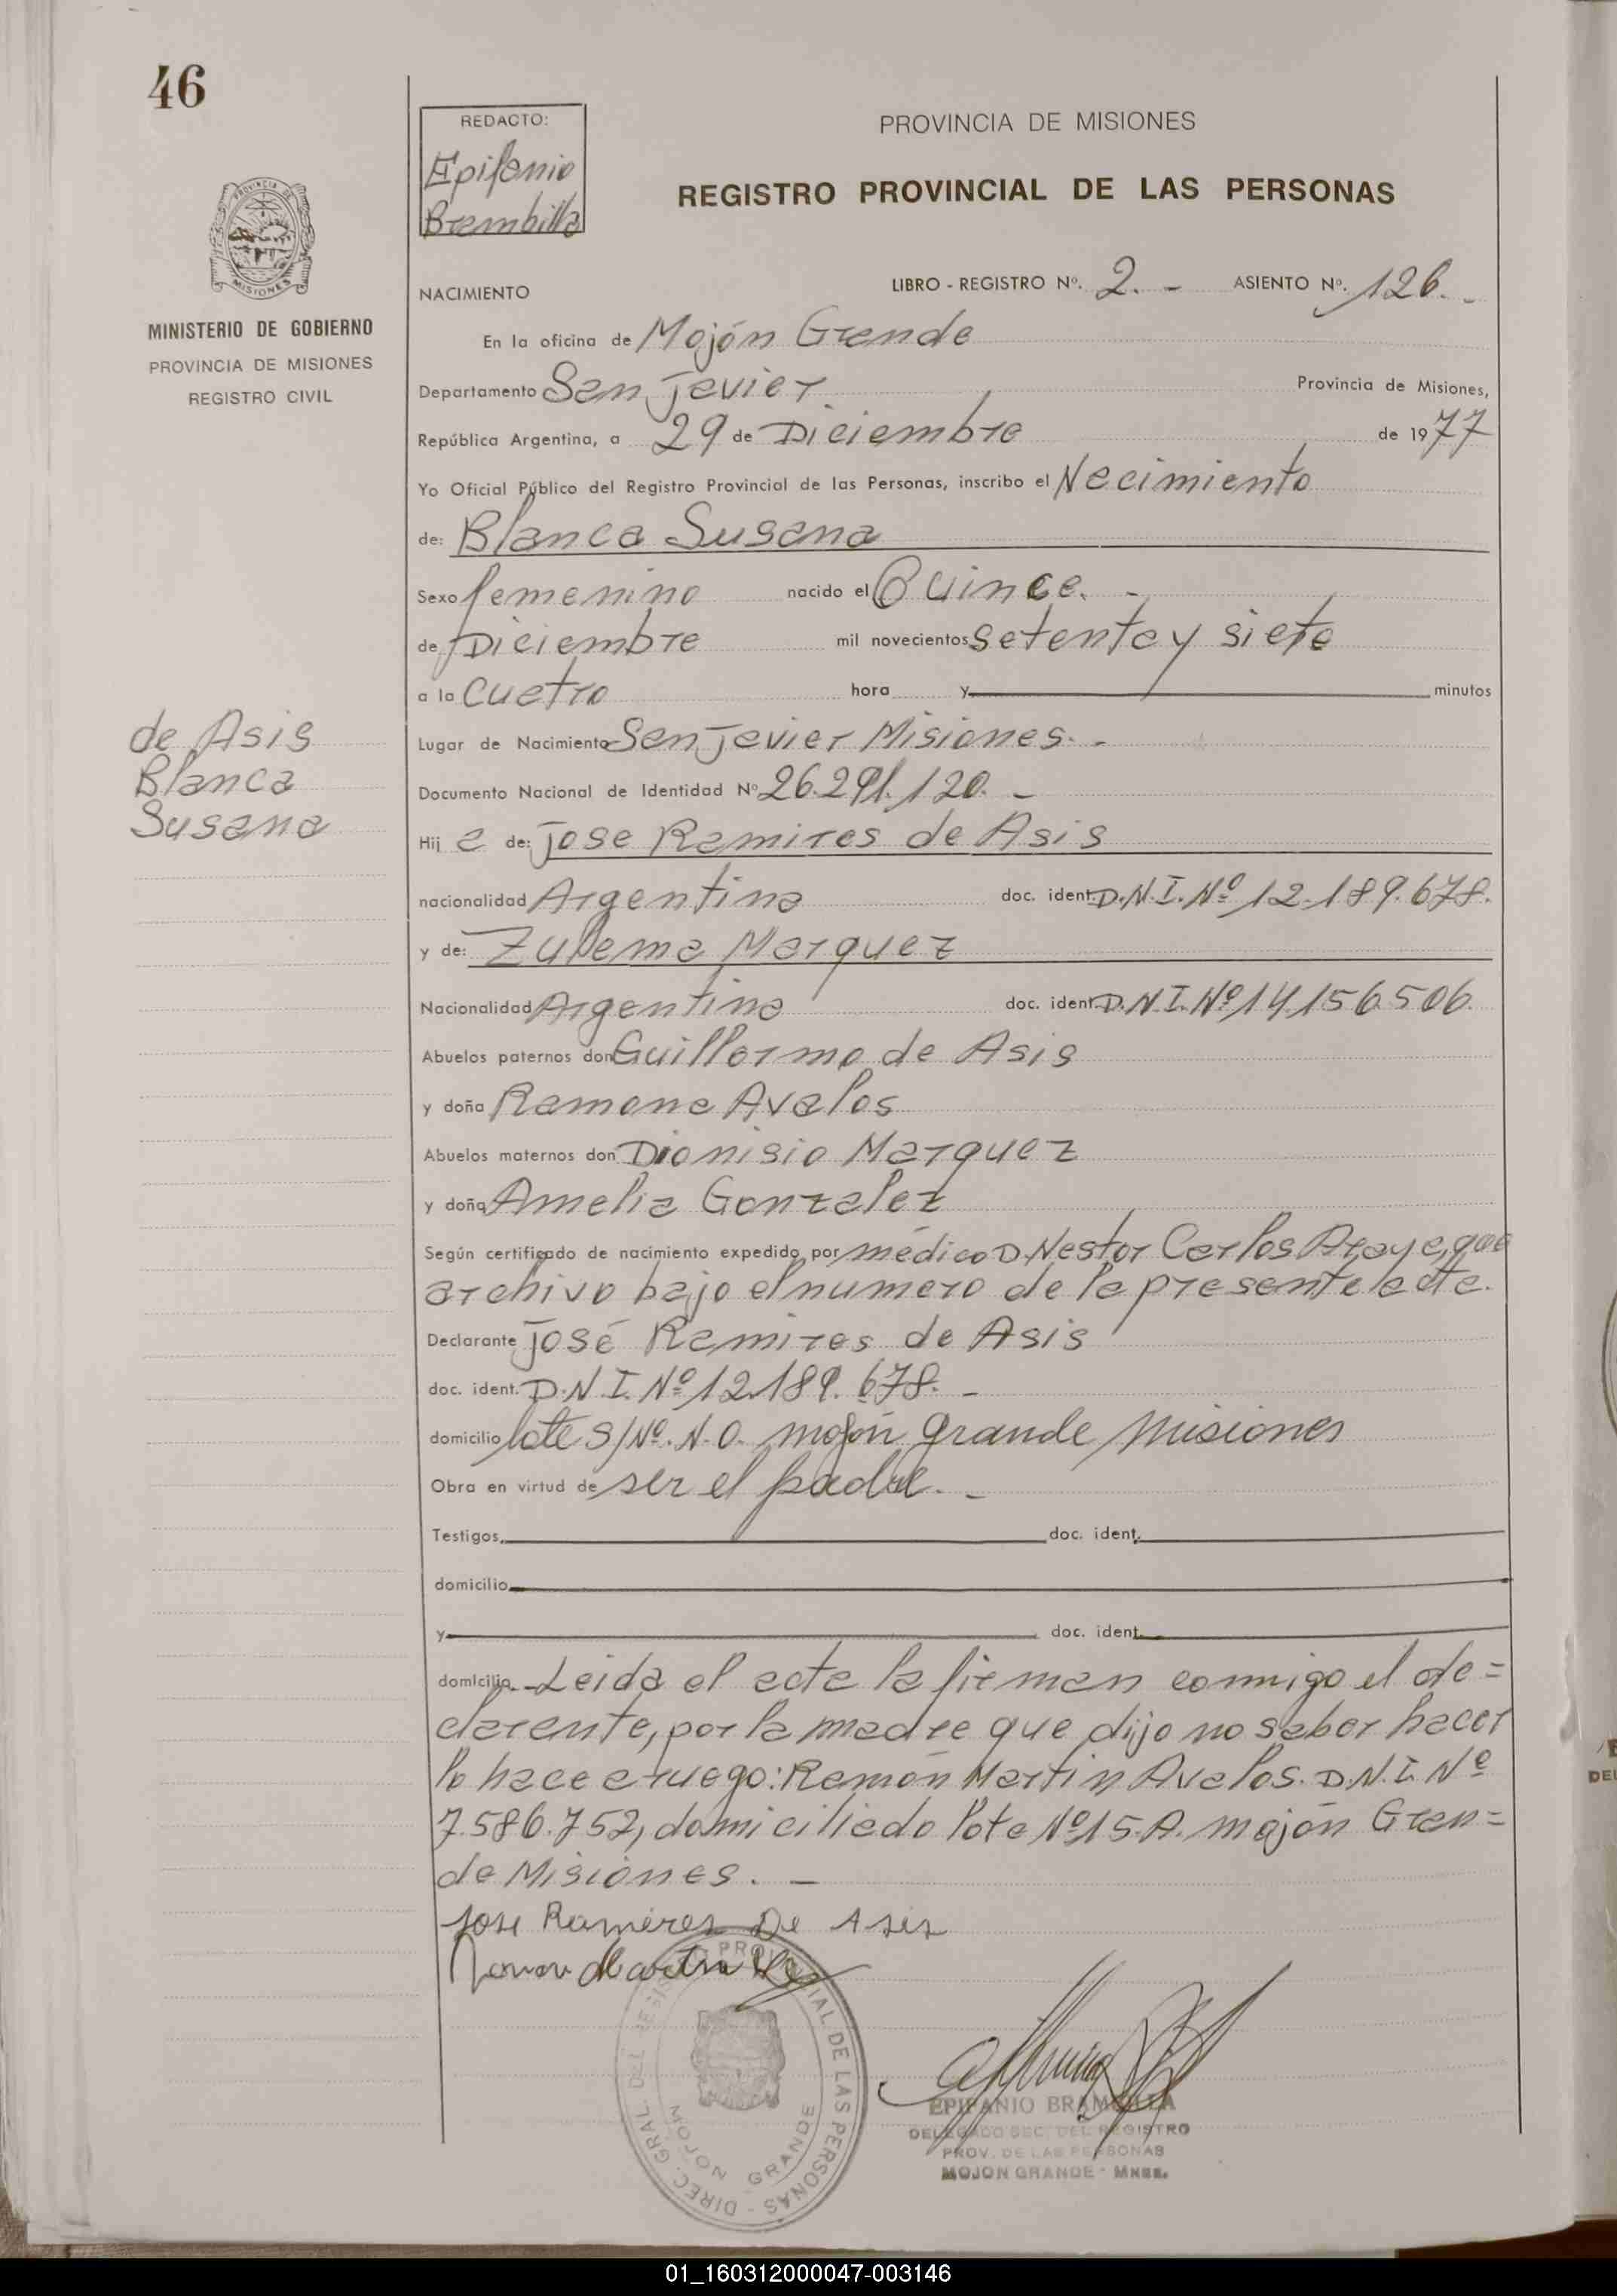 46
REDACTO:
Epifanio
Brambilla
PROVINCIA DE MISIONES
REGISTRO PROVINCIAL DE LAS PERSONAS
PROVINCIA DE
MISIONES
MINISTERIO DE GOBIERNO
PROVINCIA DE MISIONES
REGISTRO CIVIL
NACIMIENTO
LIBRO - REGISTRO Nº. 2. - ASIENTO Nº. 126. -
En la oficina de Mojón Grande
Departamento San Javier Provincia de Misiones,
República Argentina, a 29 de Diciembre de 1977
Yo Oficial Público del Registro Provincial de las Personas, inscribo el Nacimiento
de: Blanca Susana
Sexo femenino nacido el Quince. -
de Diciembre mil novecientos setenta y siete
a la cuatro hora y minutos
de Asis
Blanca
Susana
Lugar de Nacimiento San Javier Misiones. -
Documento Nacional de Identidad Nº 26.291.120. -
Hij a de: Jose Ramires de Asis
nacionalidad Argentina doc. ident. D.N.I. Nº 12.189.678.
y de: Zulema Marquez
Nacionalidad Argentina doc. ident. D.N.I. Nº 14.156.506.
Abuelos paternos don Guillermo de Asis
y doña Ramona Avalos
Abuelos maternos don Dionisio Marquez
y doña Amelia Gonzalez
Según certificado de nacimiento expedido por médico D. Nestor Carlos Araya, que
archivo bajo el numero de la presente acta.
Declarante José Ramires de Asis
doc. ident. D.N.I. Nº 12.189.678. -
domicilio lote S/Nº. N.O. mojón grande Misiones
Obra en virtud de ser el padre. -
Testigos doc. ident.
domicilio
y doc. ident.
domicilio. - Leida el acta la firman conmigo el de=
clarante, por la madre que dijo no saber hacer
lo hace a ruego: Ramón Martin Avalos. D.N.I. Nº
7.586.752, domiciliado lote Nº 15.A. mojón Gran=
de Misiones. -
Jose Ramires De Asis
Ramon Martin
DIREC. GRAL. DEL REGISTRO PROVINCIAL DE LAS PERSONAS -
MOJON GRANDE
EPIFANIO BRAMBILLA
DELEGADO SEC. DEL REGISTRO
PROV. DE LAS PERSONAS
MOJON GRANDE - MNES.
01_160312000047-003146